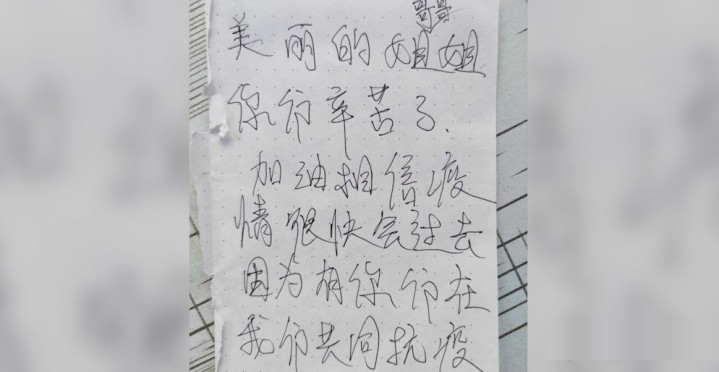 哥哥
美丽的姐姐
你们辛苦了.
加油相信疫
情很快会过去
因为有你们在
我们共同抗疫